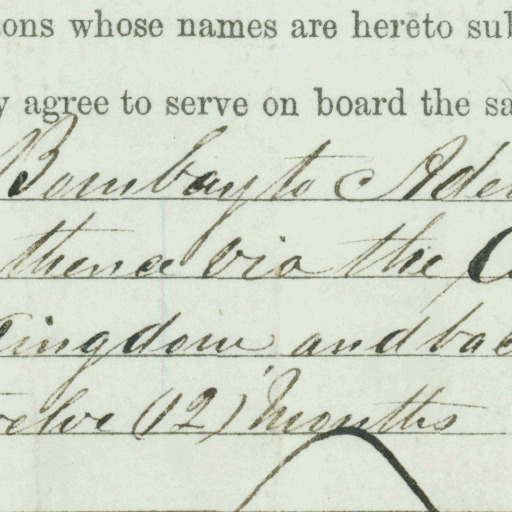 ons whose names are hereto sub
y agree to serve on board the sa
Bombay to Aden
thence via the C
Kingdom and bac
welve (12) Months